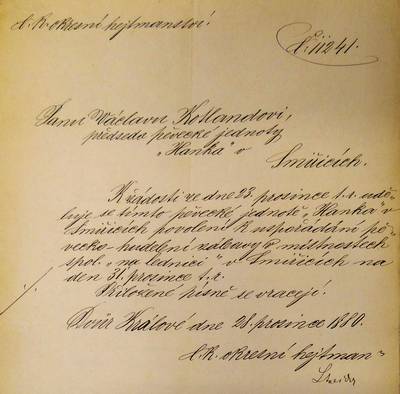 C. K. okresní hejtmanství.
č. 11241.
Panu Václavu Kotlandovi,
předseda pěvecké jednoty
„Hanka" v
Smiřicích.
K žádosti ze dne 23. prosince t. r. udě-
luje se tímto pěvecké jednotě „Hanka" v
Smiřicích povolení k uspořádání pě-
vecko-hudební zábavy v místnostech
spol. „na lednici" v Smiřicích na
den 31. prosince t. r.
Přiložené písně se vracejí.
Dvůr Králové dne 28. prosince 1880.
C. K. okresní hejtman